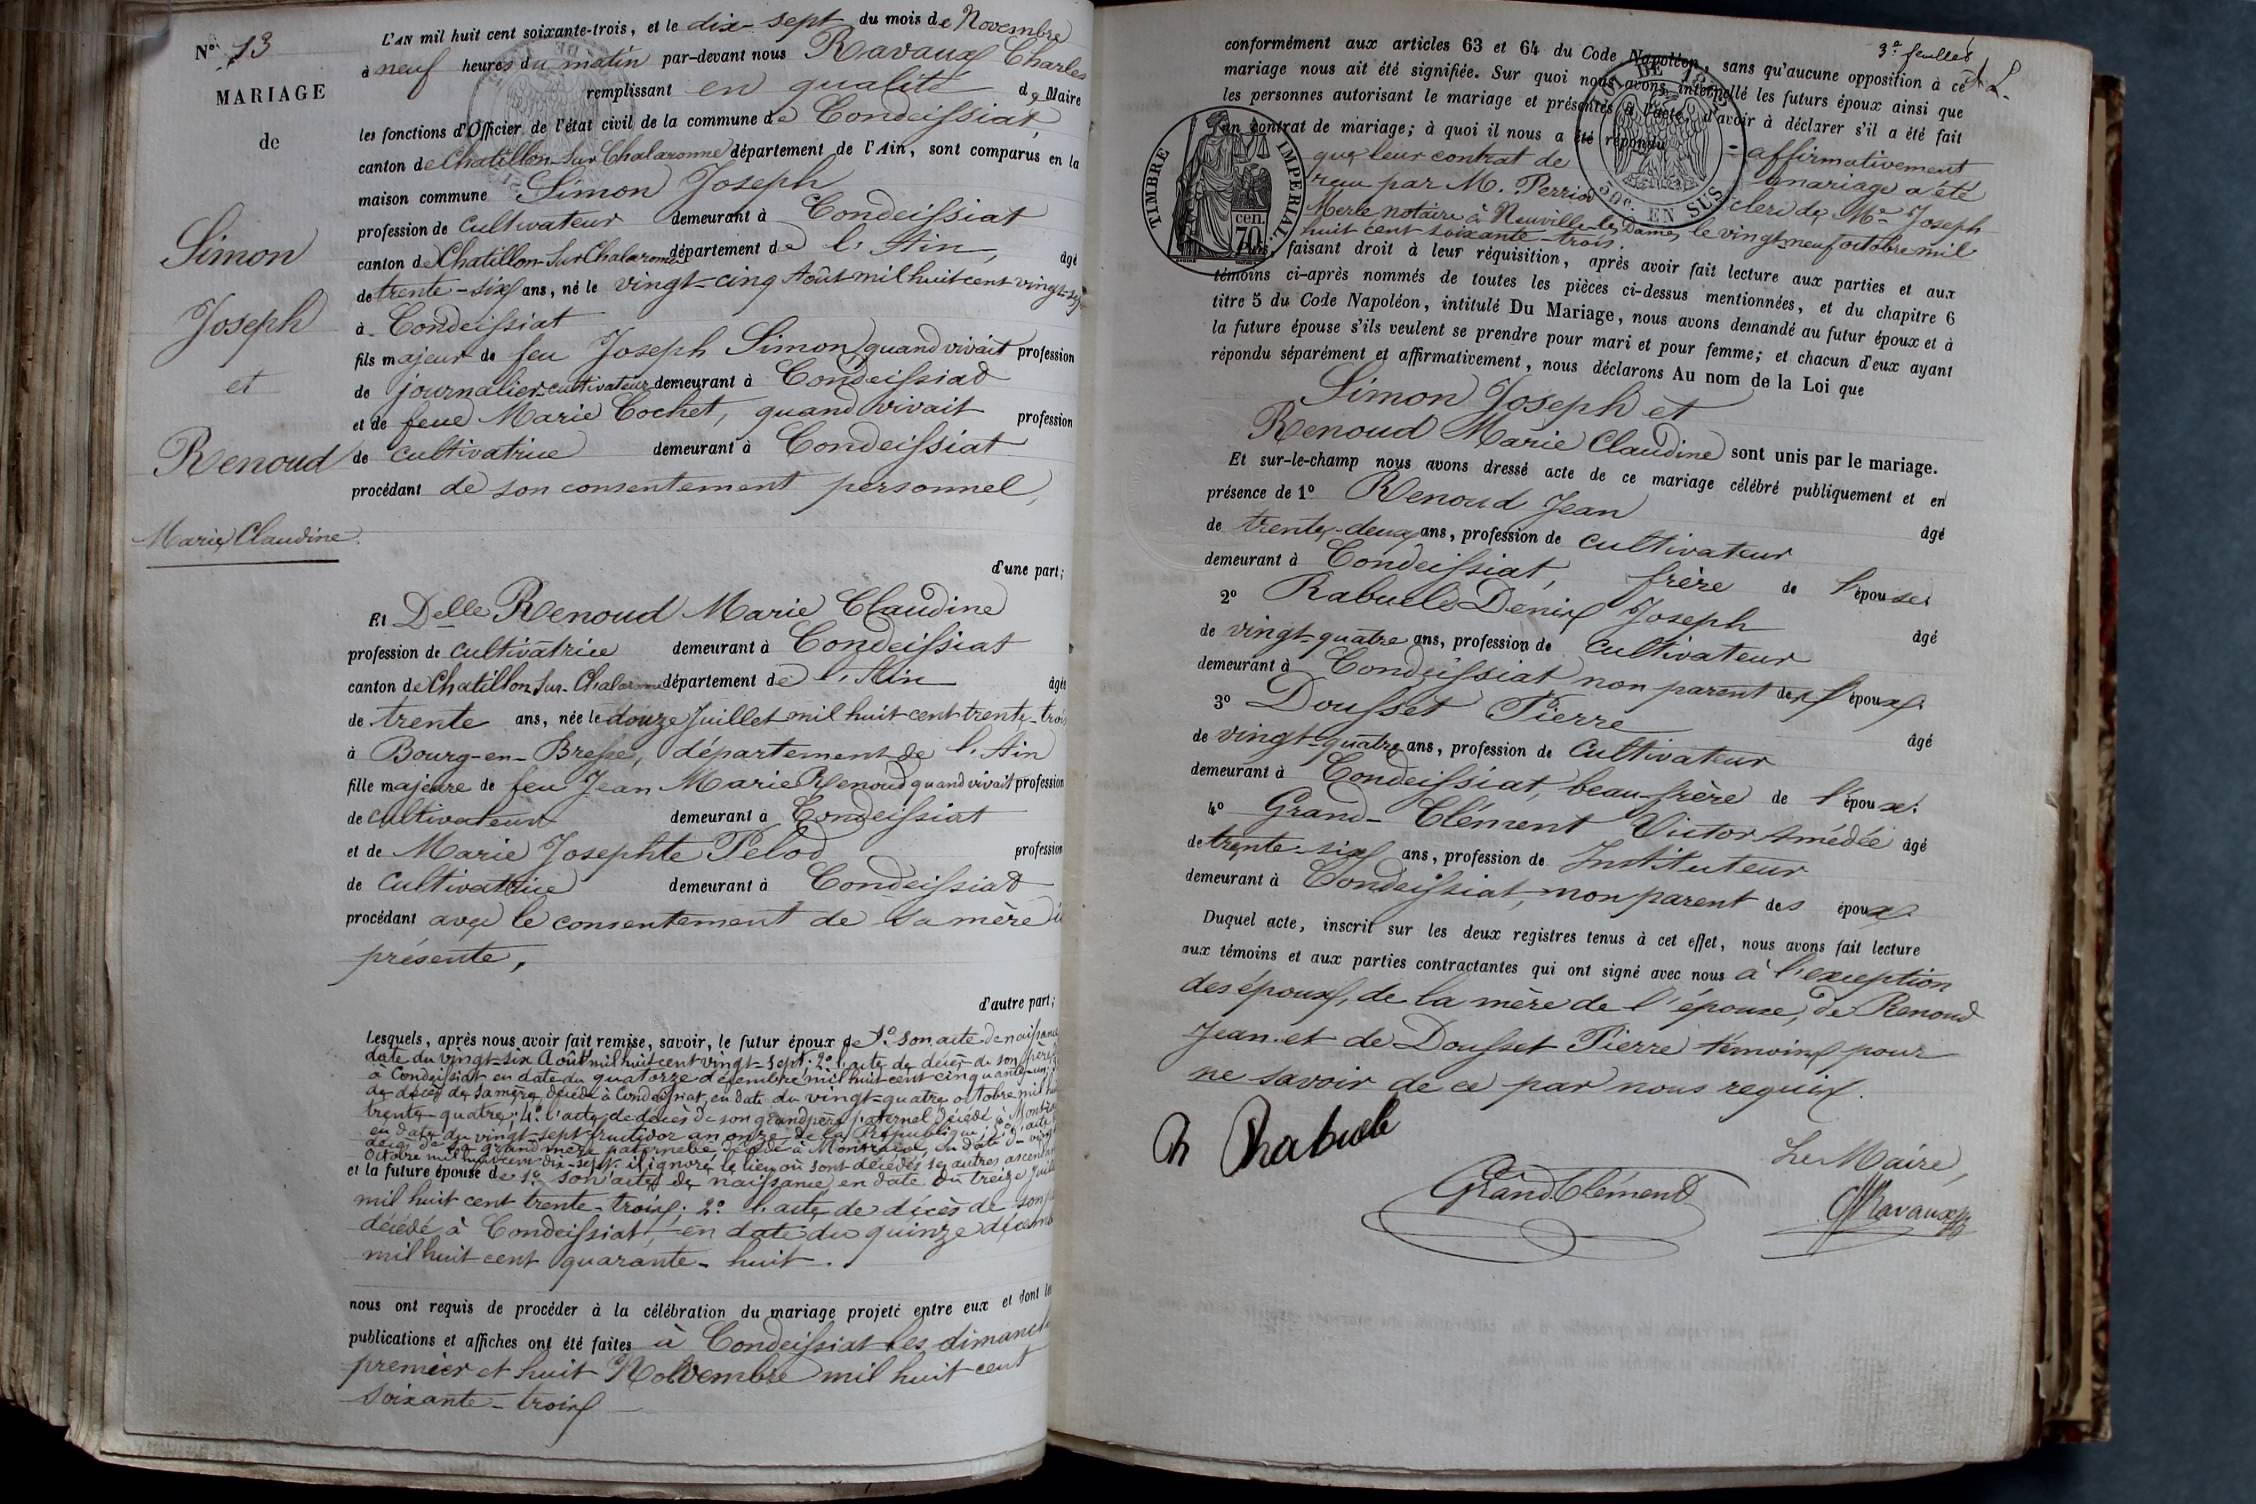 N° 13
MARIAGE
de
Simon
Joseph
et
Renoud
Marie Claudine
L'AN mil huit cent soixante-trois, et le dix-sept du mois de Novembre
à neuf heures du matin par-devant nous Ravaux Charles
remplissant en qualité de Maire
les fonctions d'Officier de l'état civil de la commune de Condeissiat,
canton de Chatillon-sur-Chalaronne département de l'Ain, sont comparus en la
maison commune Simon Joseph
profession de cultivateur demeurant à Condeissiat
canton de Chatillon-sur-Chalaronne département de l'Ain, âgé
de trente-six ans, né le vingt-cinq Août mil huit cent vingt-sept
à Condeissiat
fils majeur de feu Joseph Simon, quand vivait profession
de journalier cultivateur demeurant à Condeissiat
et de feue Marie Cochet, quand vivait profession
de cultivatrice demeurant à Condeissiat
procédant de son consentement personnel,
d'une part;
Et Delle Renoud Marie Claudine
profession de cultivatrice demeurant à Condeissiat
canton de Chatillon-sur-Chalaronne département de l'Ain âgée
de trente ans, née le douze Juillet mil huit cent trente-trois
à Bourg-en-Bresse, département de l'Ain
fille majeure de feu Jean Marie Renoud quand vivait profession
de cultivateur demeurant à Condeissiat
et de Marie Josephte Pelod profession
de cultivatrice demeurant à Condeissiat
procédant avec le consentement de sa mère ici
présente,
d'autre part;
Lesquels, après nous avoir fait remise, savoir, le futur époux de 1° son acte de naissance
date du vingt-six Août mil huit cent vingt-sept; 2° l'acte de décès de son père
à Condeissiat en date du quatorze décembre mil huit cent cinquante-un;
de décès de sa mère décédée à Condeissiat, en date du vingt-quatre octobre mil huit
trente-quatre; 4° l'acte de décès de son grand père paternel décédé à
en date du vingt-sept fructidor an onze de la République; 5° l'acte
décès de sa grand mère paternelle décédée à en date du vingt
Octobre mil huit cent dix-sept il ignore le lieu où sont décédés ses autres ascendants
et la future épouse de 1° son acte de naissance en date du treize Juillet
mil huit cent trente-trois; 2° l'acte de décès de son père
décédé à Condeissiat, en date du quinze décembre
mil huit cent quarante-huit.
nous ont requis de procéder à la célébration du mariage projeté entre eux et dont les
publications et affiches ont été faites à Condeissiat les dimanches
premier et huit Novembre mil huit cent
soixante-trois
3e feuillet
conformément aux articles 63 et 64 du Code Napoléon, sans qu'aucune opposition à ce
mariage nous ait été signifiée. Sur quoi nous avons interpellé les futurs époux ainsi que
les personnes autorisant le mariage et présentes à l'acte, d'avoir à déclarer s'il a été fait
un contrat de mariage; à quoi il nous a été répondu affirmativement
que leur contrat de mariage a été
reçu par M. Perrier clerc de Me Joseph
Merle, notaire à Neuville-les-Dames, le vingt-neuf octobre mil
huit cent soixante-trois.
TIMBRE IMPERIAL
70 cen.
50c. EN SUS
Puis, faisant droit à leur réquisition, après avoir fait lecture aux parties et aux
témoins ci-après nommés de toutes les pièces ci-dessus mentionnées, et du chapitre 6
titre 5 du Code Napoléon, intitulé Du Mariage, nous avons demandé au futur époux et à
la future épouse s'ils veulent se prendre pour mari et pour femme; et chacun d'eux ayant
répondu séparément et affirmativement, nous déclarons Au nom de la Loi que
Simon Joseph et
Renoud Marie Claudine sont unis par le mariage.
Et sur-le-champ nous avons dressé acte de ce mariage célébré publiquement et en
présence de 1° Renoud Jean
âgé
de trente-deux ans, profession de cultivateur
demeurant à Condeissiat, frère de l'épouse
2° Rabuel Denis Joseph
âgé
de vingt-quatre ans, profession de cultivateur
demeurant à Condeissiat non parent des époux
3° Dousset Pierre
âgé
de vingt-quatre ans, profession de cultivateur
demeurant à Condeissiat, beau-frère de l'époux
4° Grand-Clément Victor Amédée âgé
de trente-six ans, profession de Instituteur
demeurant à Condeissiat, non parent des époux
Duquel acte, inscrit sur les deux registres tenus à cet effet, nous avons fait lecture
aux témoins et aux parties contractantes qui ont signé avec nous à l'exception
des époux, de la mère de l'épouse, de Renoud
Jean et de Dousset Pierre témoins pour
ne savoir de ce par nous requis.
Rabuel
Grand Clément
Le Maire,
Ravaux